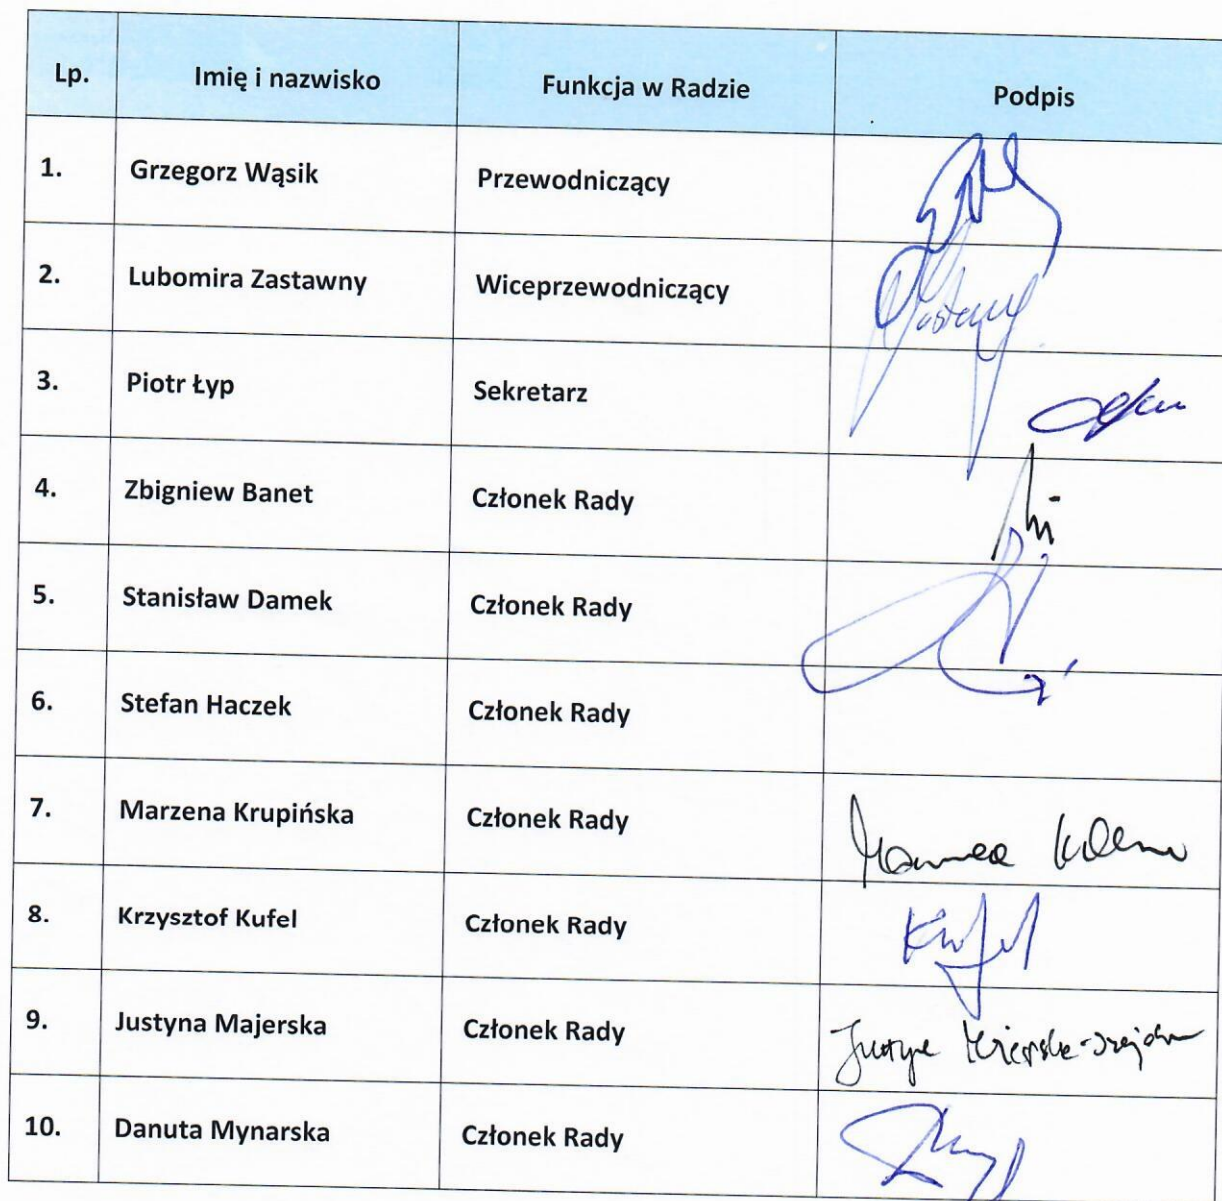 Lp. Imię i nazwisko Funkcja w Radzie Podpis
1. Grzegorz Wąsik Przewodniczący
2. Lubomira Zastawny Wiceprzewodniczący
3. Piotr Łyp Sekretarz
4. Zbigniew Banet Członek Rady
5. Stanisław Damek Członek Rady
6. Stefan Haczek Członek Rady
7. Marzena Krupińska Członek Rady
8. Krzysztof Kufel Członek Rady Kufel
9. Justyna Majerska Członek Rady
10. Danuta Mynarska Członek Rady